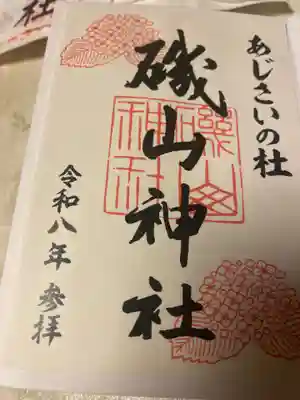 あじさいの杜
磯山神社
令和八年 参拝
磯山神社
社